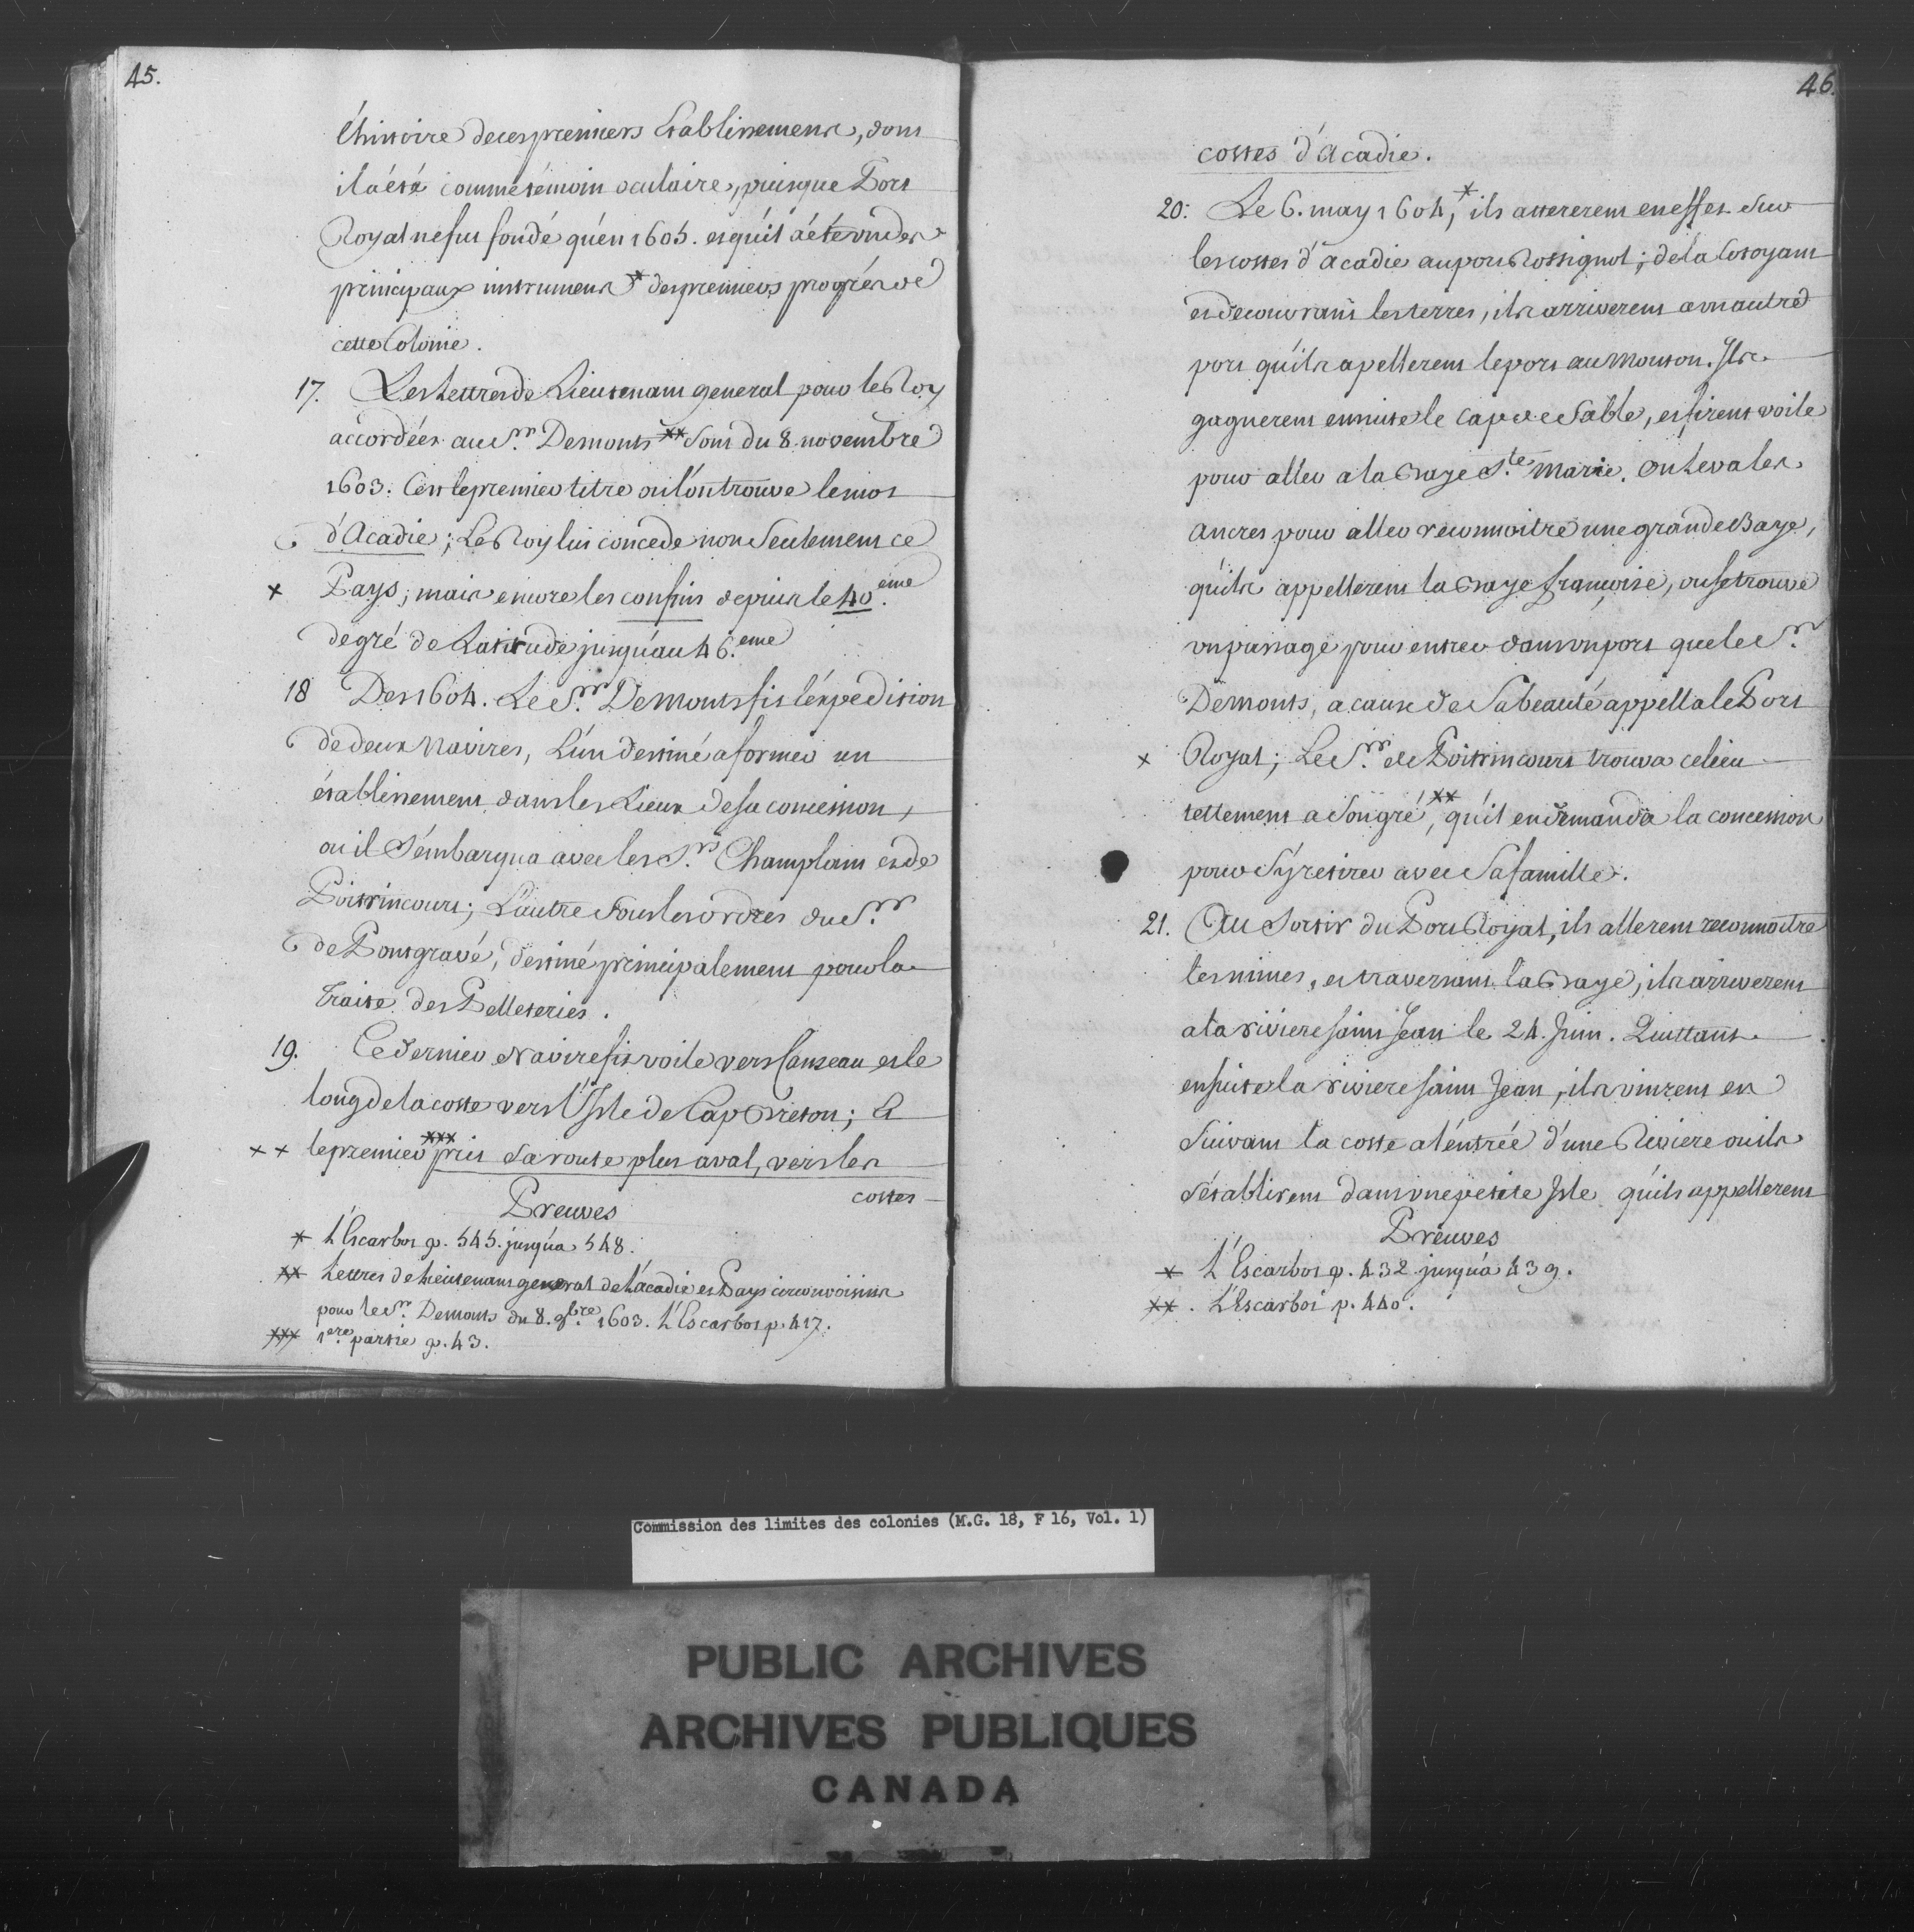 45.
l'histoire de ces premiers Etablissemens, dont
il a été comme témoin oculaire, puisque Port
Royal ne fut fondé qu'en 1605. et qu'il a été un des
principaux instrumens * des premiers progrés de
cette Colonie.
17. Les Lettres de Lieutenant general pour le Roy
accordées au Sr. Demonts ** sont du 8 novembre
1603. C'est le premier titre où l'on trouve le mot
d'Acadie; Le Roy lui concede non seulement ce
x Pays; mais encore les confins depuis le 40.eme
degré de Latitude jusqu'au 46.eme
18 Des 1604. Le Sr. De Monts fit l'expedition
de deux Navires, L'un destiné a former un
établissement dans les Lieux de sa concession,
où il s'embarqua avec les Srs. Champlain et de
Poitrincourt; L'autre sous les ordres du Sr.
de Pontgravé, destiné principalement pour la
traite des Pelleteries.
19. Ce dernier Navire fit voile vers Canseau et le
long de la coste vers l'Isle de Cap Breton; Et
xx le premier *** prit sa route plus aval, vers les
costes
Preuves
* L'Escarbot p. 545. jusqu'a 548.
** Lettres de Lieutenant general de l'acadie et Pays circonvoisins
pour le Sr. Demonts du 8. 9.bre 1603. L'Escarbot p. 417.
*** 1ere. partie p. 43.
46.
costes d'Acadie.
20. Le 6. may 1604,* ils attererent en effet sur
les costes d'acadie au port Rossignol; de la Cotoyant
et decouvrant les terres, ils arriverent a un autre
port qu'ils apellerent le port au Mouton. Ils
gagnerent ensuite le Cap de Sable, et firent voile
pour aller a la Baye Ste. Marie. On leva les
ancres pour aller reconnoitre une grande Baye,
qu'ils appellerent la Baye françoise, ou se trouve
un passage pour entrer dans un port que le Sr.
Demonts, a cause de sa beauté appella le Port
x Royal; Le Sr. de Poitrincourt trouva ce lieu
tellement a son gré,** qu'il en demanda la concession
pour s'y retirer avec sa famille.
21. Au sortir du Port Royal, ils allerent reconnoitre
les mines, et traversant la Baye, ils arriverent
a la riviere saint Jean le 24. Juin. Quittant
ensuite la riviere saint Jean, ils vinrent en
suivant la coste a l'entrée d'une Riviere ou ils
s'établirent dans une petite Isle qu'ils appellerent
Preuves
* L'Escarbot p. 432 jusqu'a 439.
** . L'Escarbot p. 440.
Commission des limites des colonies (M.G. 18, F 16, Vol. 1)
PUBLIC ARCHIVES
ARCHIVES PUBLIQUES
CANADA